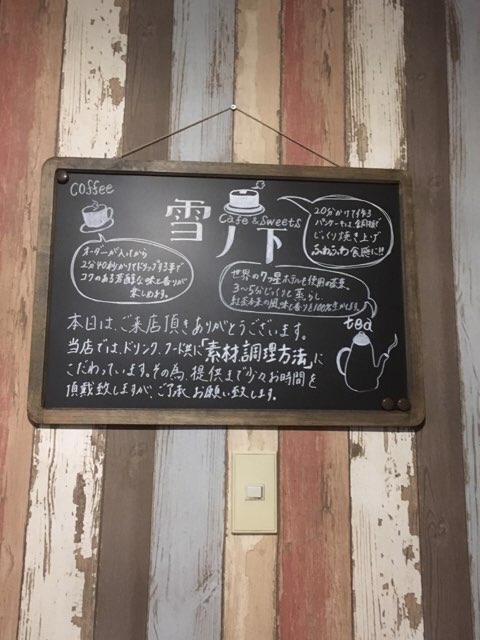 coffee
雪ノ下
Cafe & Sweets
20分かけて作る
パンケーキは、銅板で
じっくり焼き上げ
ふわふわ食感に!!
オーダーが入ってから
2分40秒かけてドリップする事で
コクのある芳醇な味と香りが
楽しめます。
世界の7つ星ホテルも使用の茶葉
3〜5分じっくりと蒸らし
紅茶本来の風味と香りを100%生かします。
tea
本日は、ご来店頂きありがとうございます。
当店では、ドリンク、フード共に「素材、調理方法」に
こだわっています。その為、提供まで少々お時間を
頂戴致しますが、ご了承、お願い致します。